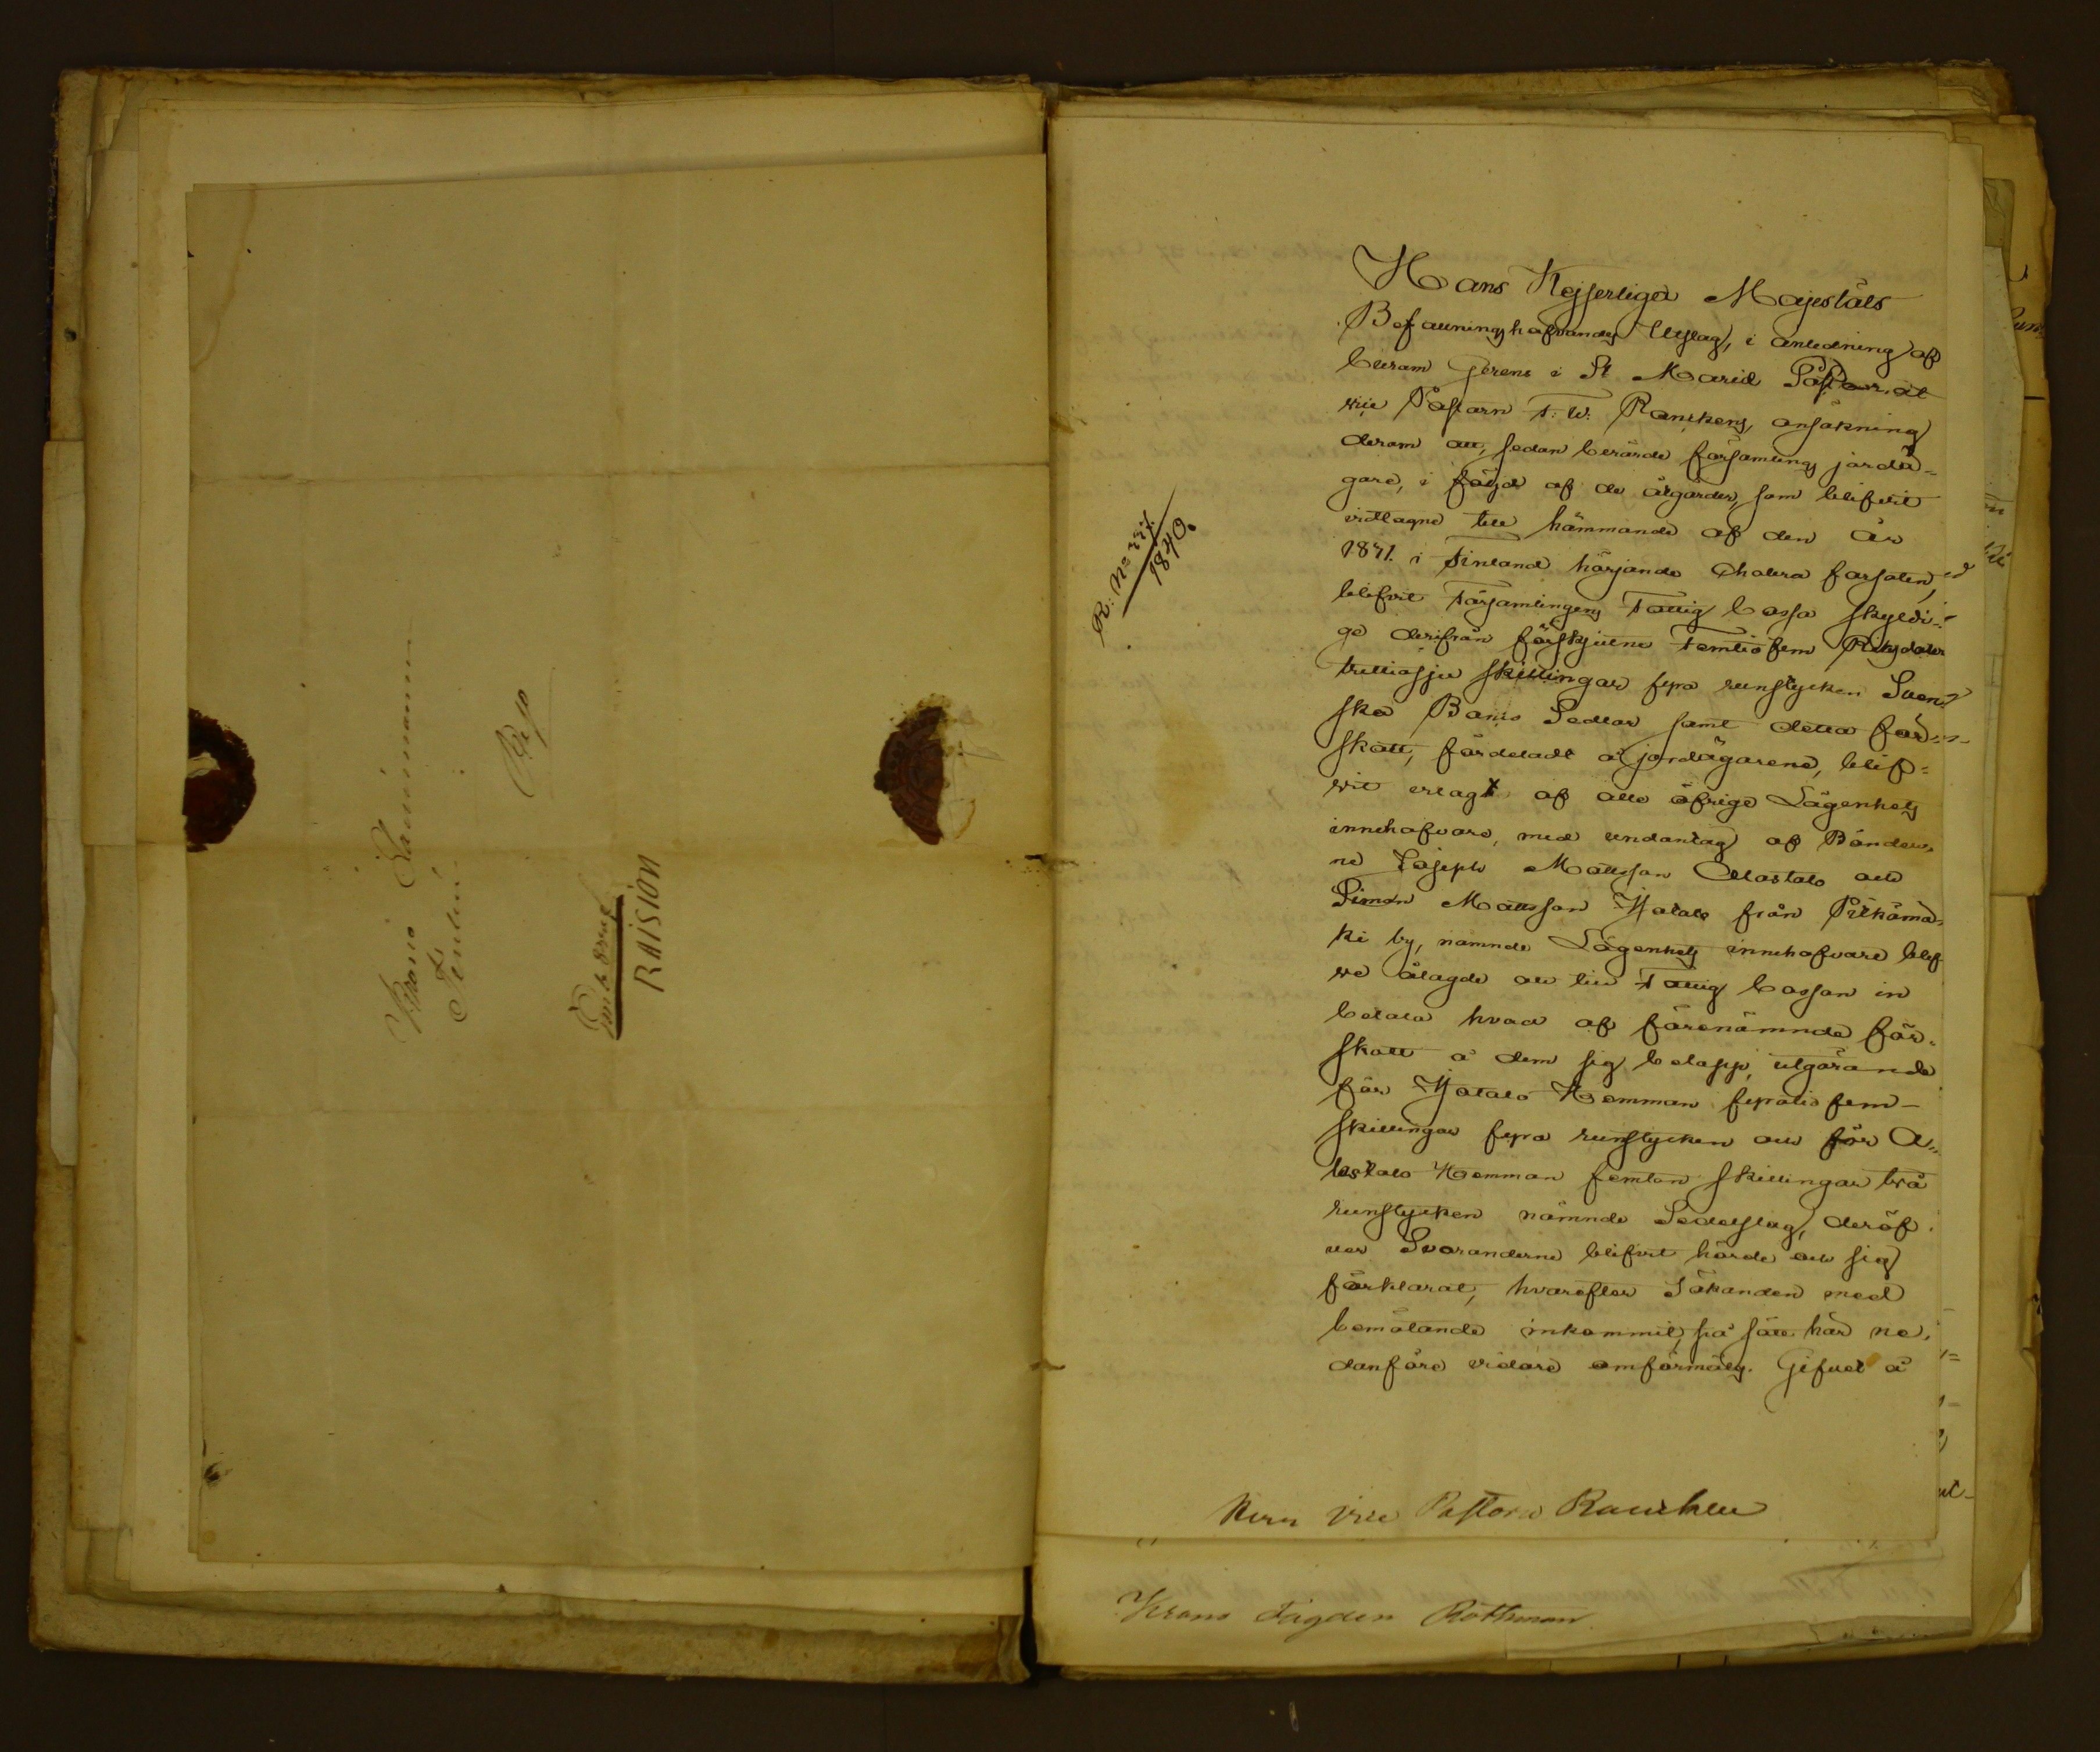 Krono Länsimannen
Reso
Embetsväg
RAISION
R: No
1840.
Hans Kejserliga Majestäts
Befallningshafvandes Utslag, i anledning af
Curam Gerens i St Mariæ Pastorat
vice Pastorn F: W: Ranckens, ansökning
derom att, sedan berörde församlings jordä-
gare, i följd af de åtgärder, som blifvit
vidtagne till hämmande af den År
1831. i Finland härjande Cholera farsoten,
blifvit Församlingens Fattig Cassa skyldi-
ge derifrån förskjutne Femtiofem Riksdaler
trettiosju skillingar fyra runstycken Sven-
ska Banco Sedlar samt detta för-
skott, fördeladt å jordägarene, blif-
vit erlagt af alla öfrige Lägenhets
innehafvare, med undantag af Bönder-
ne Joseph Mattsson Alastalo och
Simon Mattsson Yötalo från Pitkämä-
ki by, nämnde Lägenhets innehafvare blif-
ve ålagde att till Fattig Cassan in
betala hvad af förenämnde för-
skott å dem sig belöpp, utgörande
för Yötalo Hemman fyratio fem
skillingar fyra runstycken och för A-
lastalo Hemman femton skillingar två
runstycken nämnde Sedelslag, deröf-
ver Svaranderne blifvit hörde och sig
förklarat, hvarefter Sökanden med
bemötande inkommit, på sätt här ne-
danföre vidare omförmäles. Gifvet å
Herr Vice Pastorn Rancken
Krono Fogden Rothman